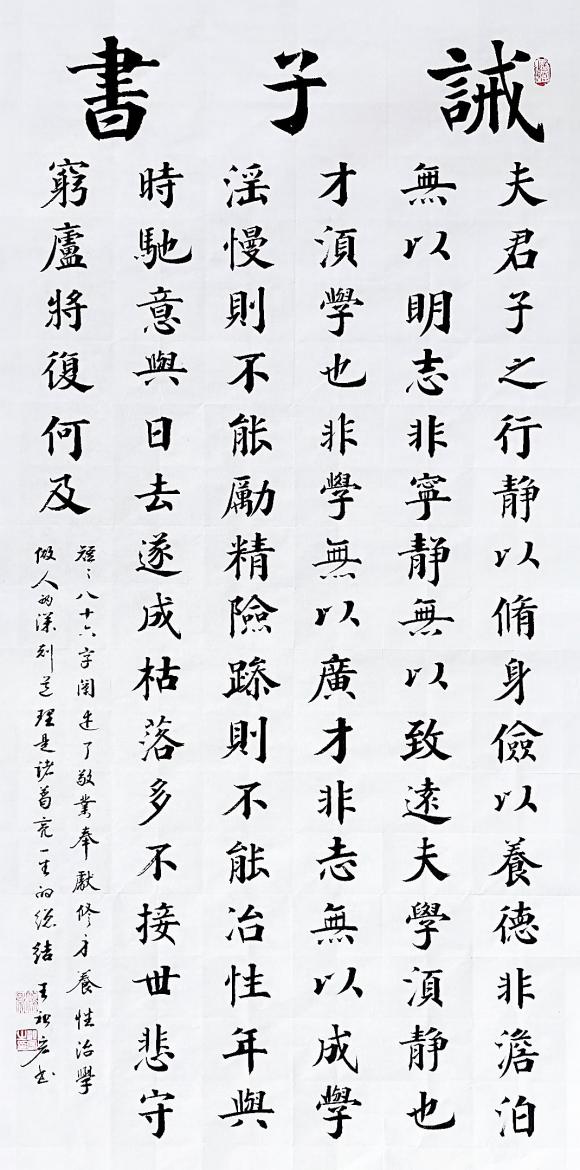 誡子書
夫君子之行靜以脩身儉以養德非澹泊
無以明志非寧靜無以致遠夫學湏靜也
才湏學也非學無以廣才非志無以成學
淫慢則不能勵精險躁則不能冶性年與
時馳意與日去遂成枯落多不接世悲守
窮廬將復何及
短〻八十六字阐述了敬業奉獻修身養性治學
做人的深刻道理是諸葛亮一生的總結 王